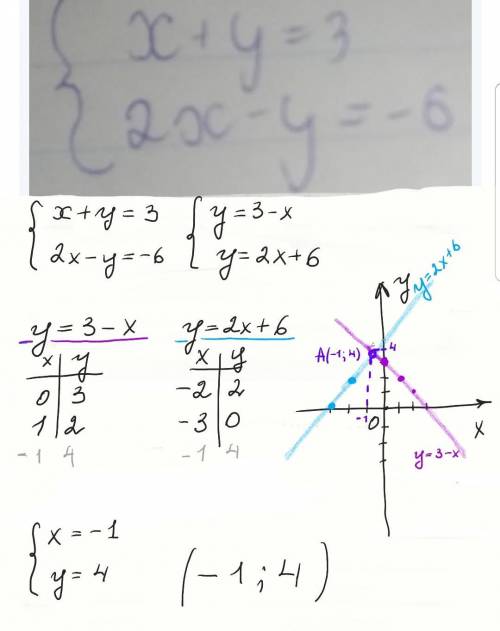 x+y=3
2x-y=-6
x+y=3
2x-y=-6
y=3-x
y=2x+6
y=3-x
x y
0 3
1 2
-1 4
y=2x+6
x y
-2 2
-3 0
-1 4
y
y=2x+6
A(-1;4)
4
-1
0
x
y=3-x
x=-1
y=4
(-1;4)